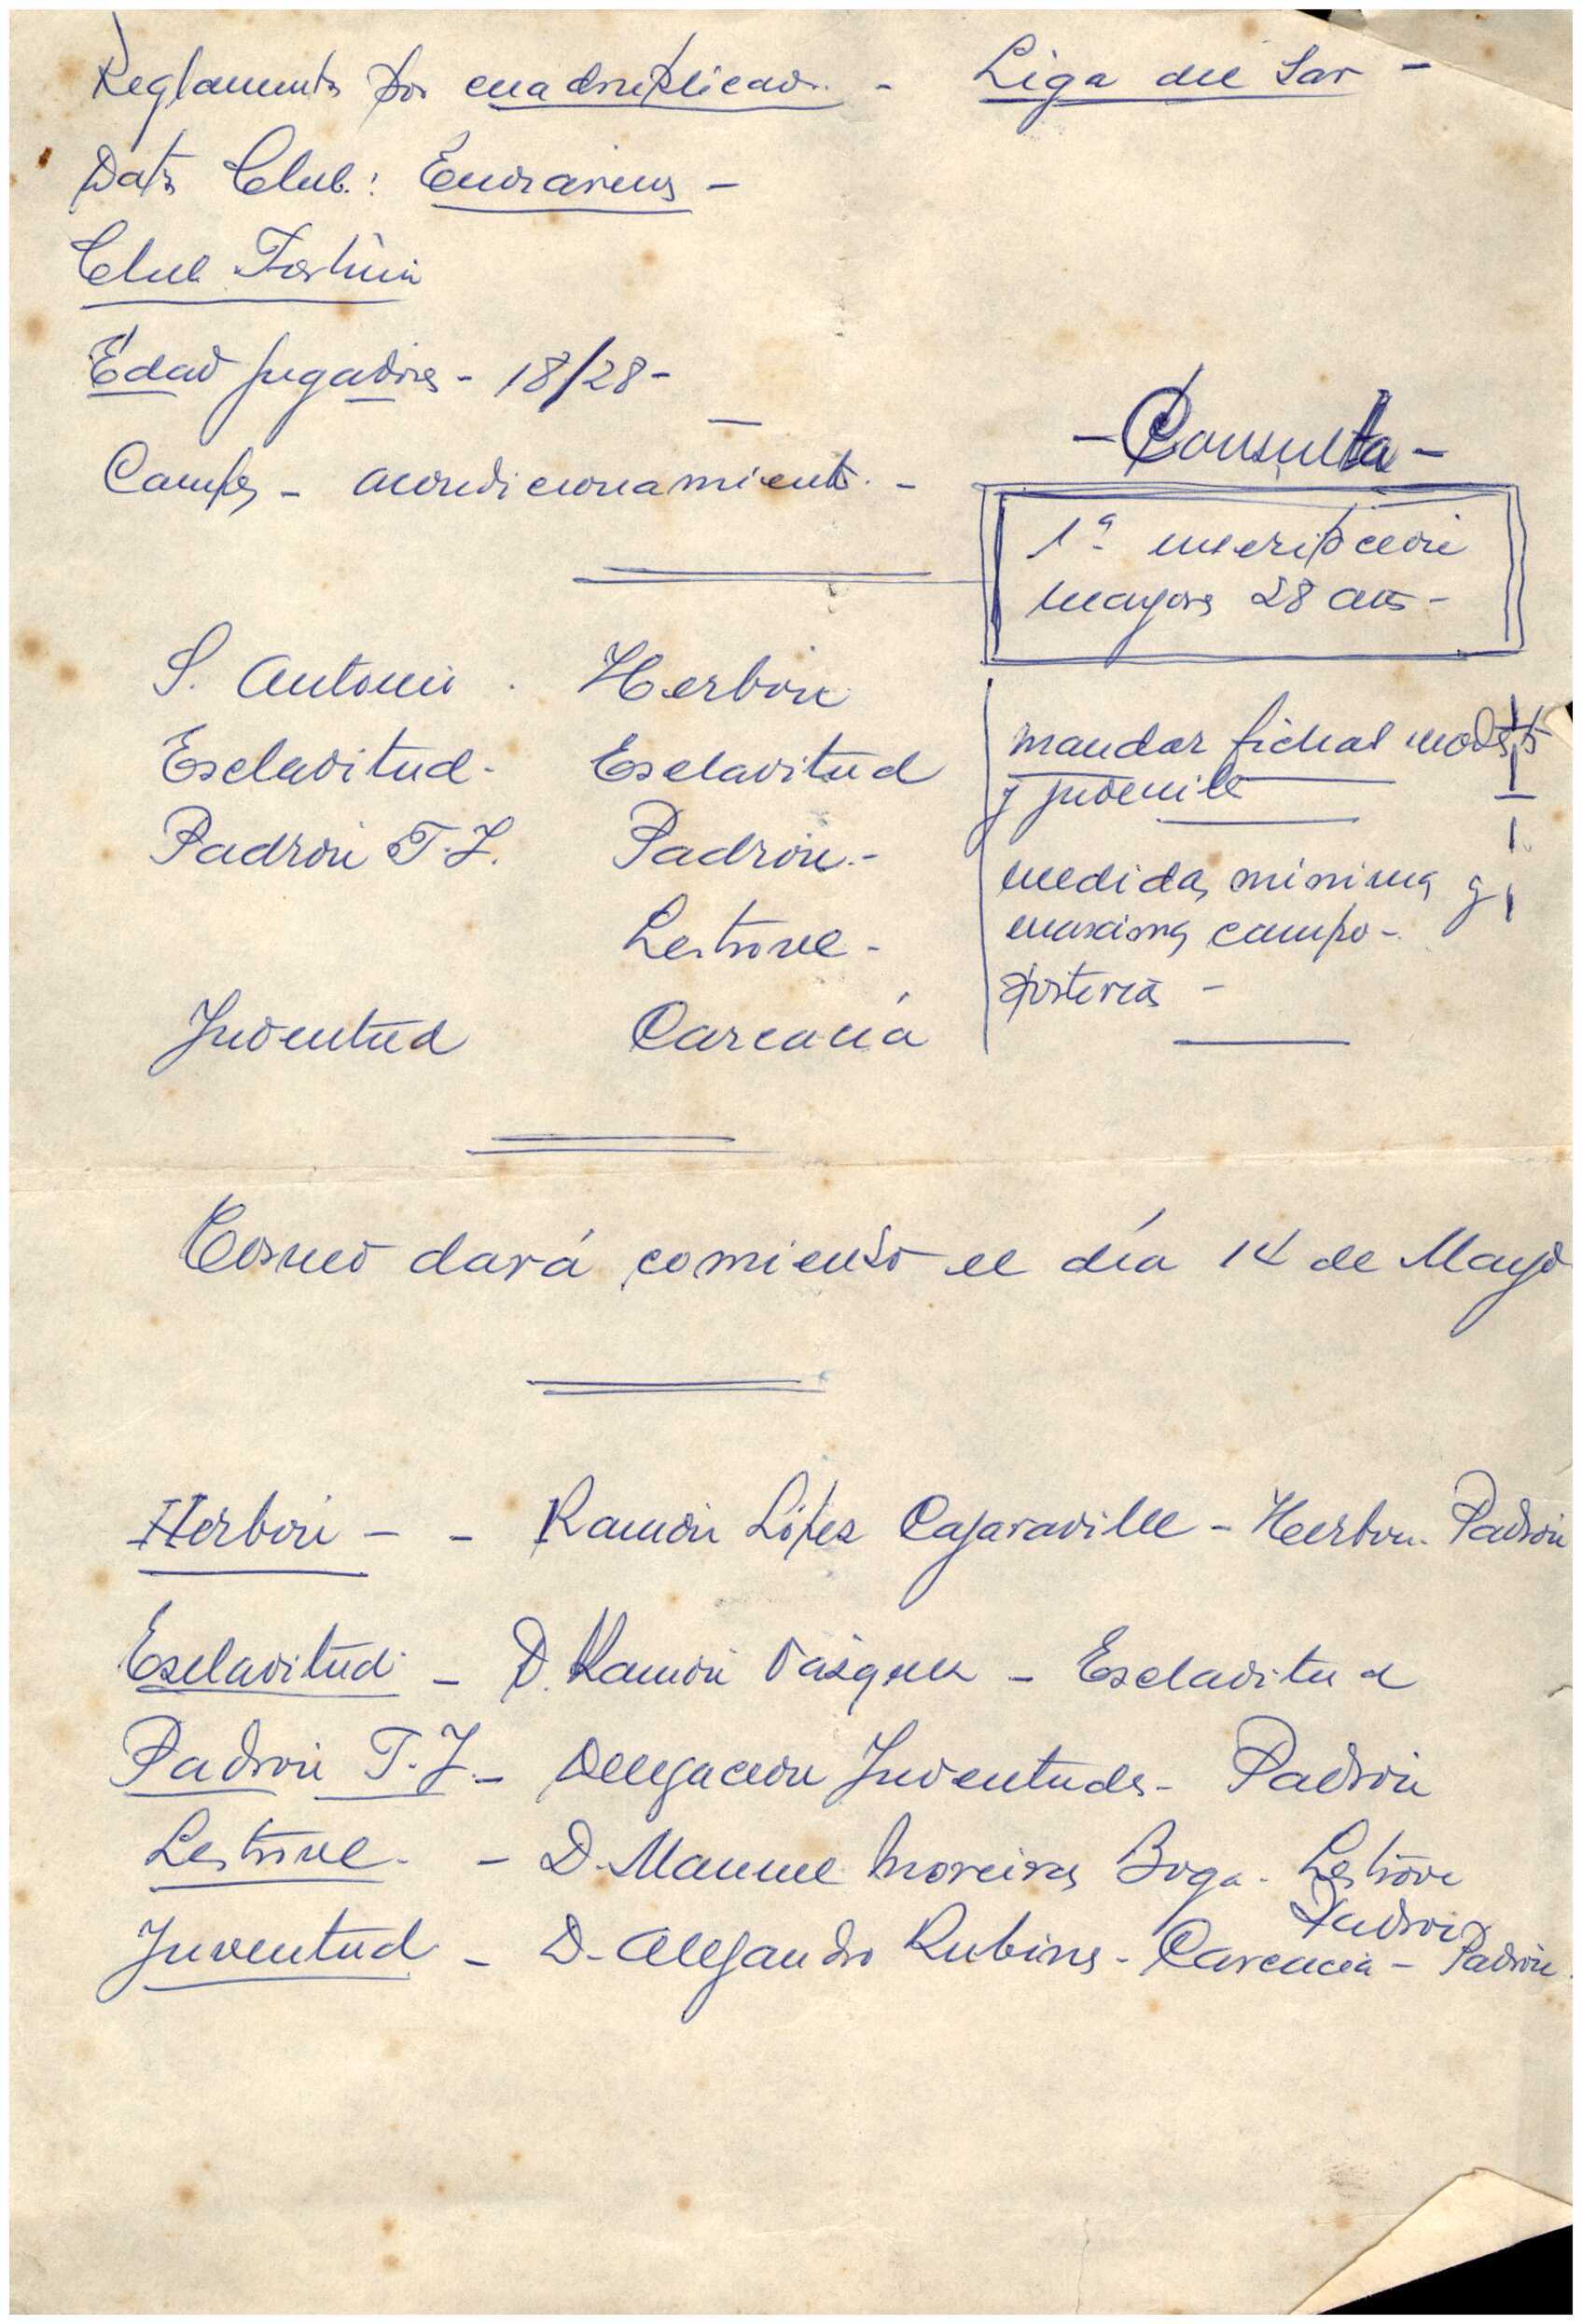 Reglamento por cuadruplicado. - Liga del Sar -
Datos Club: Enviarnos -
Club
Edad jugadores - 18/28 -
Campos - acondicionamiento. -
- Consulta -
1ª inscripción
mayores 28 años -
S. Antonio . Herbón
Esclavitud - Esclavitud
Padrón T.J. Padrón. -
Lestrove -
Juventud Carcacía
mandar fichas modesto
y juvenile
medidas mínimas y
maximas campo -
porterías -
Torneo dará comienzo el día 14 de Mayo
Herbón - - Ramón López Cajaraville - Herbón. Padrón
Esclavitud - D. Ramón Vázquez - Esclavitud
Padrón T.J. - Delegación Juventudes - Padrón
Lestrove. - D. Manuel Moreiras Boga - Lestrove
Padrón
Juventud - D. Alejandro Rubines - Carcacía - Padrón.